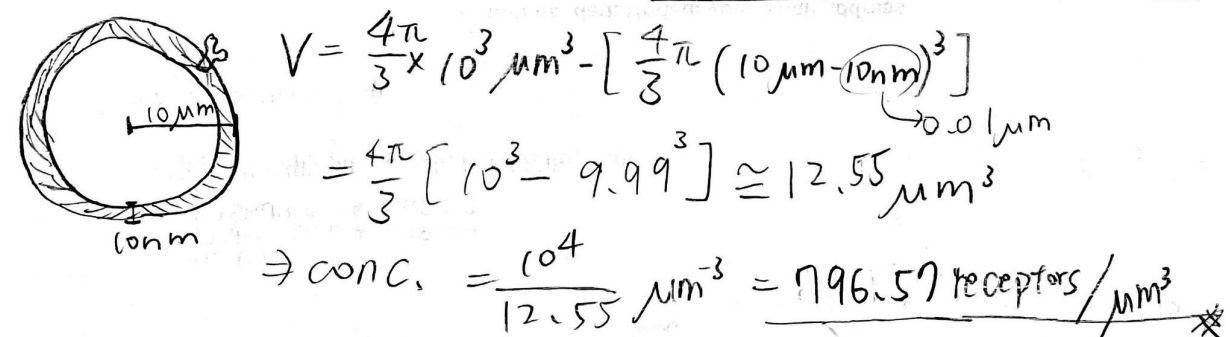 V = \frac{4π}{3} × 10³ μm³ - [ \frac{4}{3} π (10 μm - 10nm)³ ]
→ 0.01 μm
10 μm
= \frac{4π}{3} [ 10³ - 9.99³ ] ≅ 12.55 μm³
10nm
⇒ conc. = \frac{10⁴}{12.55} μm⁻³ = 796.57 receptors/μm³